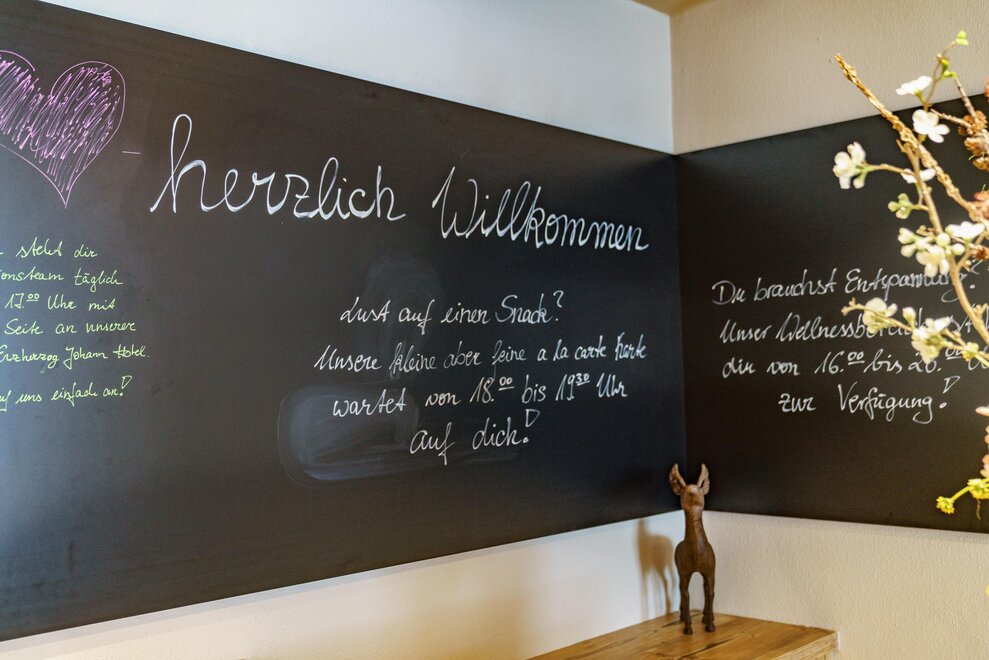 herzlich Willkommen
steht dir
täglich
17.00 Uhr mit
Seite an unserer
Erzherzog Johann Hotel.
uns einfach an!
Lust auf einen Snack?
Unsere kleine aber feine a la carte Karte
wartet von 18.00 bis 19.30 Uhr
auf dich!
Du brauchst Entspannung?
Unser
dir von 16.00 bis
zur Verfügung!